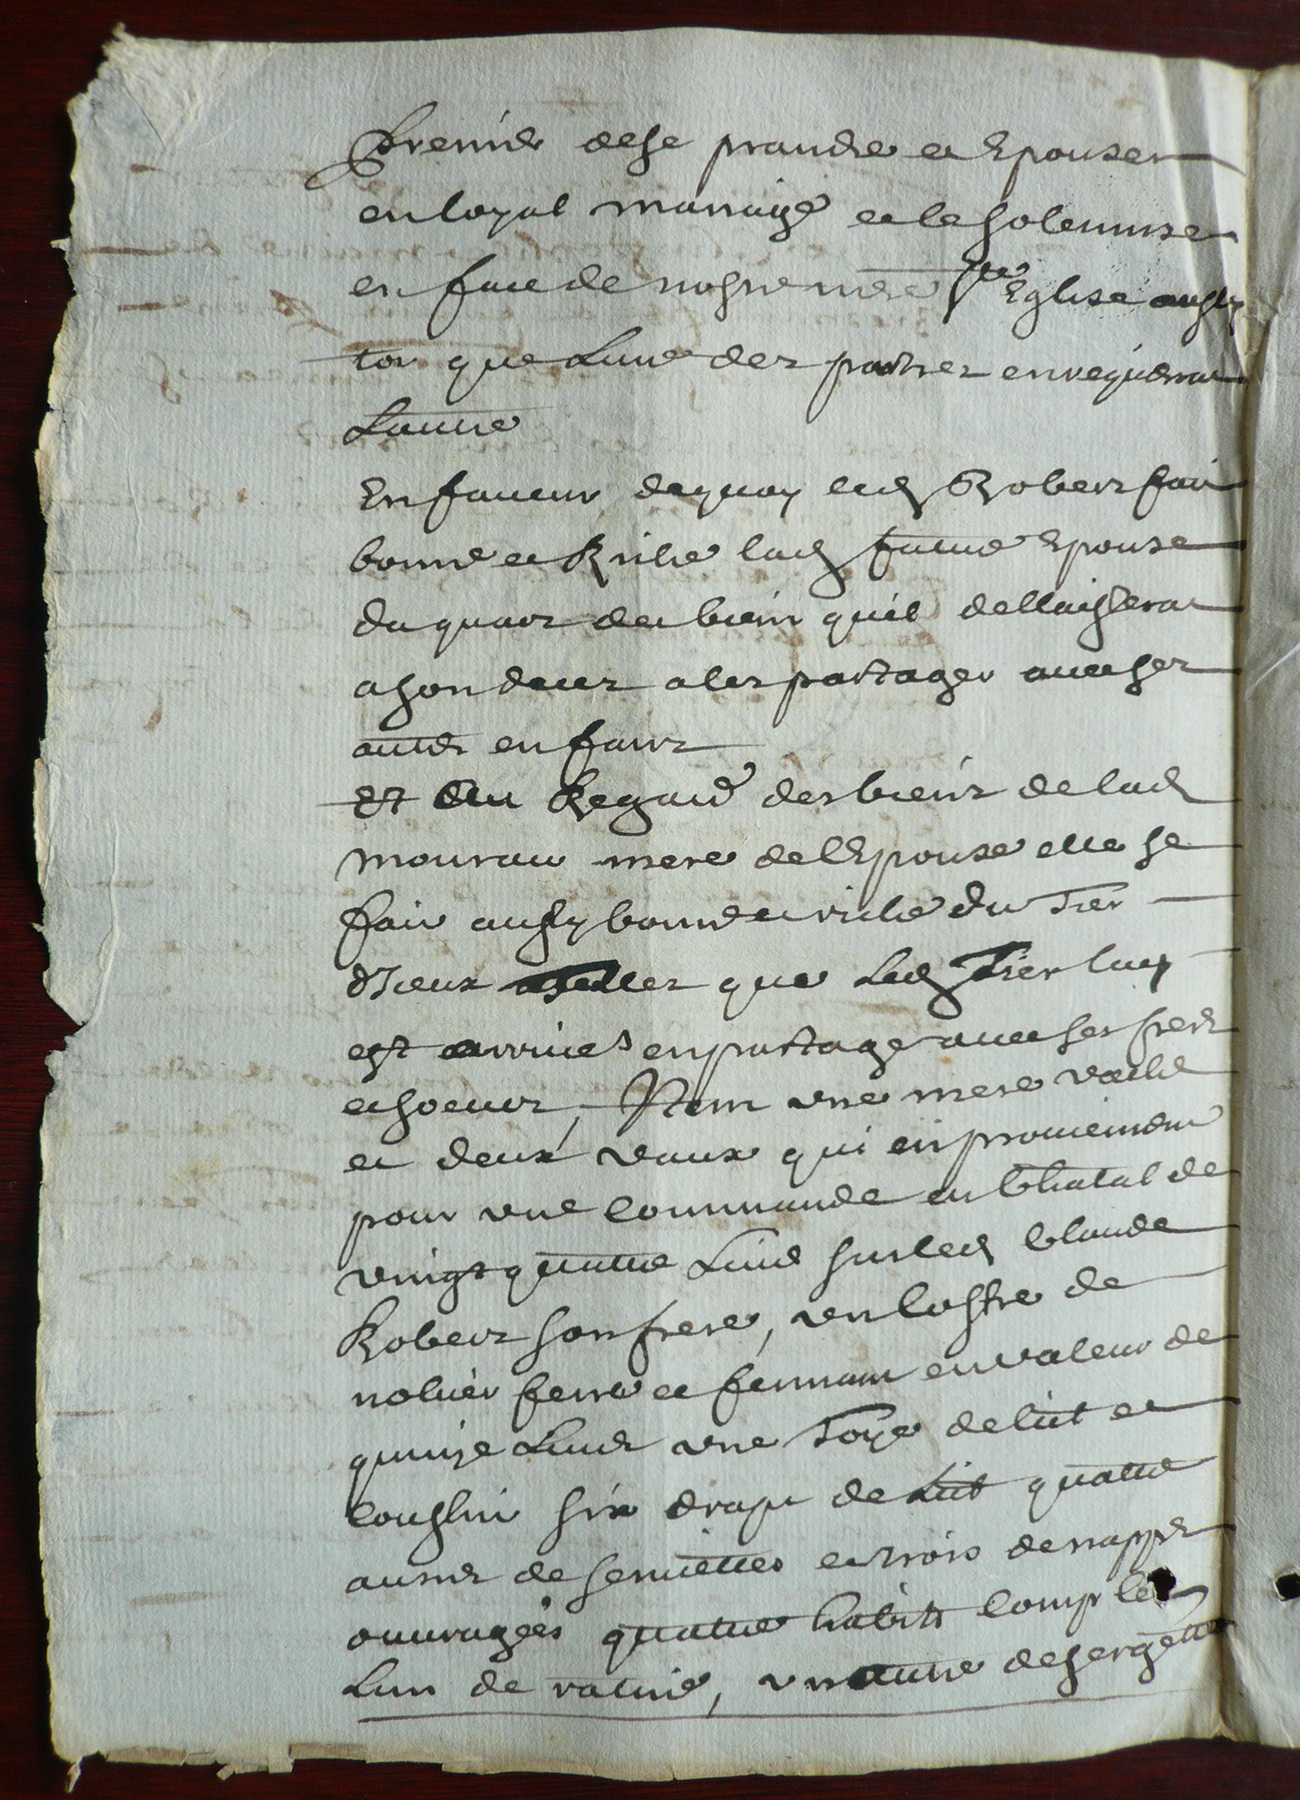 premier de se prandre et Epouser
en loyal marriage et le solemniser
en face de nostre mere ste Eglise aussy
tot que Lune des parties en requerrat
Lautre
En faveur dequoy led Robert fait
bonne et Riche lad future Epouse
du quart des biens quil dellaissera
a son deces a les partager avec ses
autres enfants
Et Au Regard des biens de lad
mourau mere de lEpouse elle se
fait aussy bonne et riche du Tier
d'Iceux telles que Led Tier luy
est arrivé en partage avec ses freres
et soeurs, Item une mere vache
et deux veaux qui en proviennent
pour une commande en Chatal de
vingt quatre Livres sur led Claude
Robert son frere, un coffre de
nohier ferré et fermant en valeur de
quinze Livres une Toye de lit et
coussin six draps de Lit quatre
aunes de serviettes et trois de nappes
ouvragées quatre habits complets
Lun de ratine, un autre de sergette